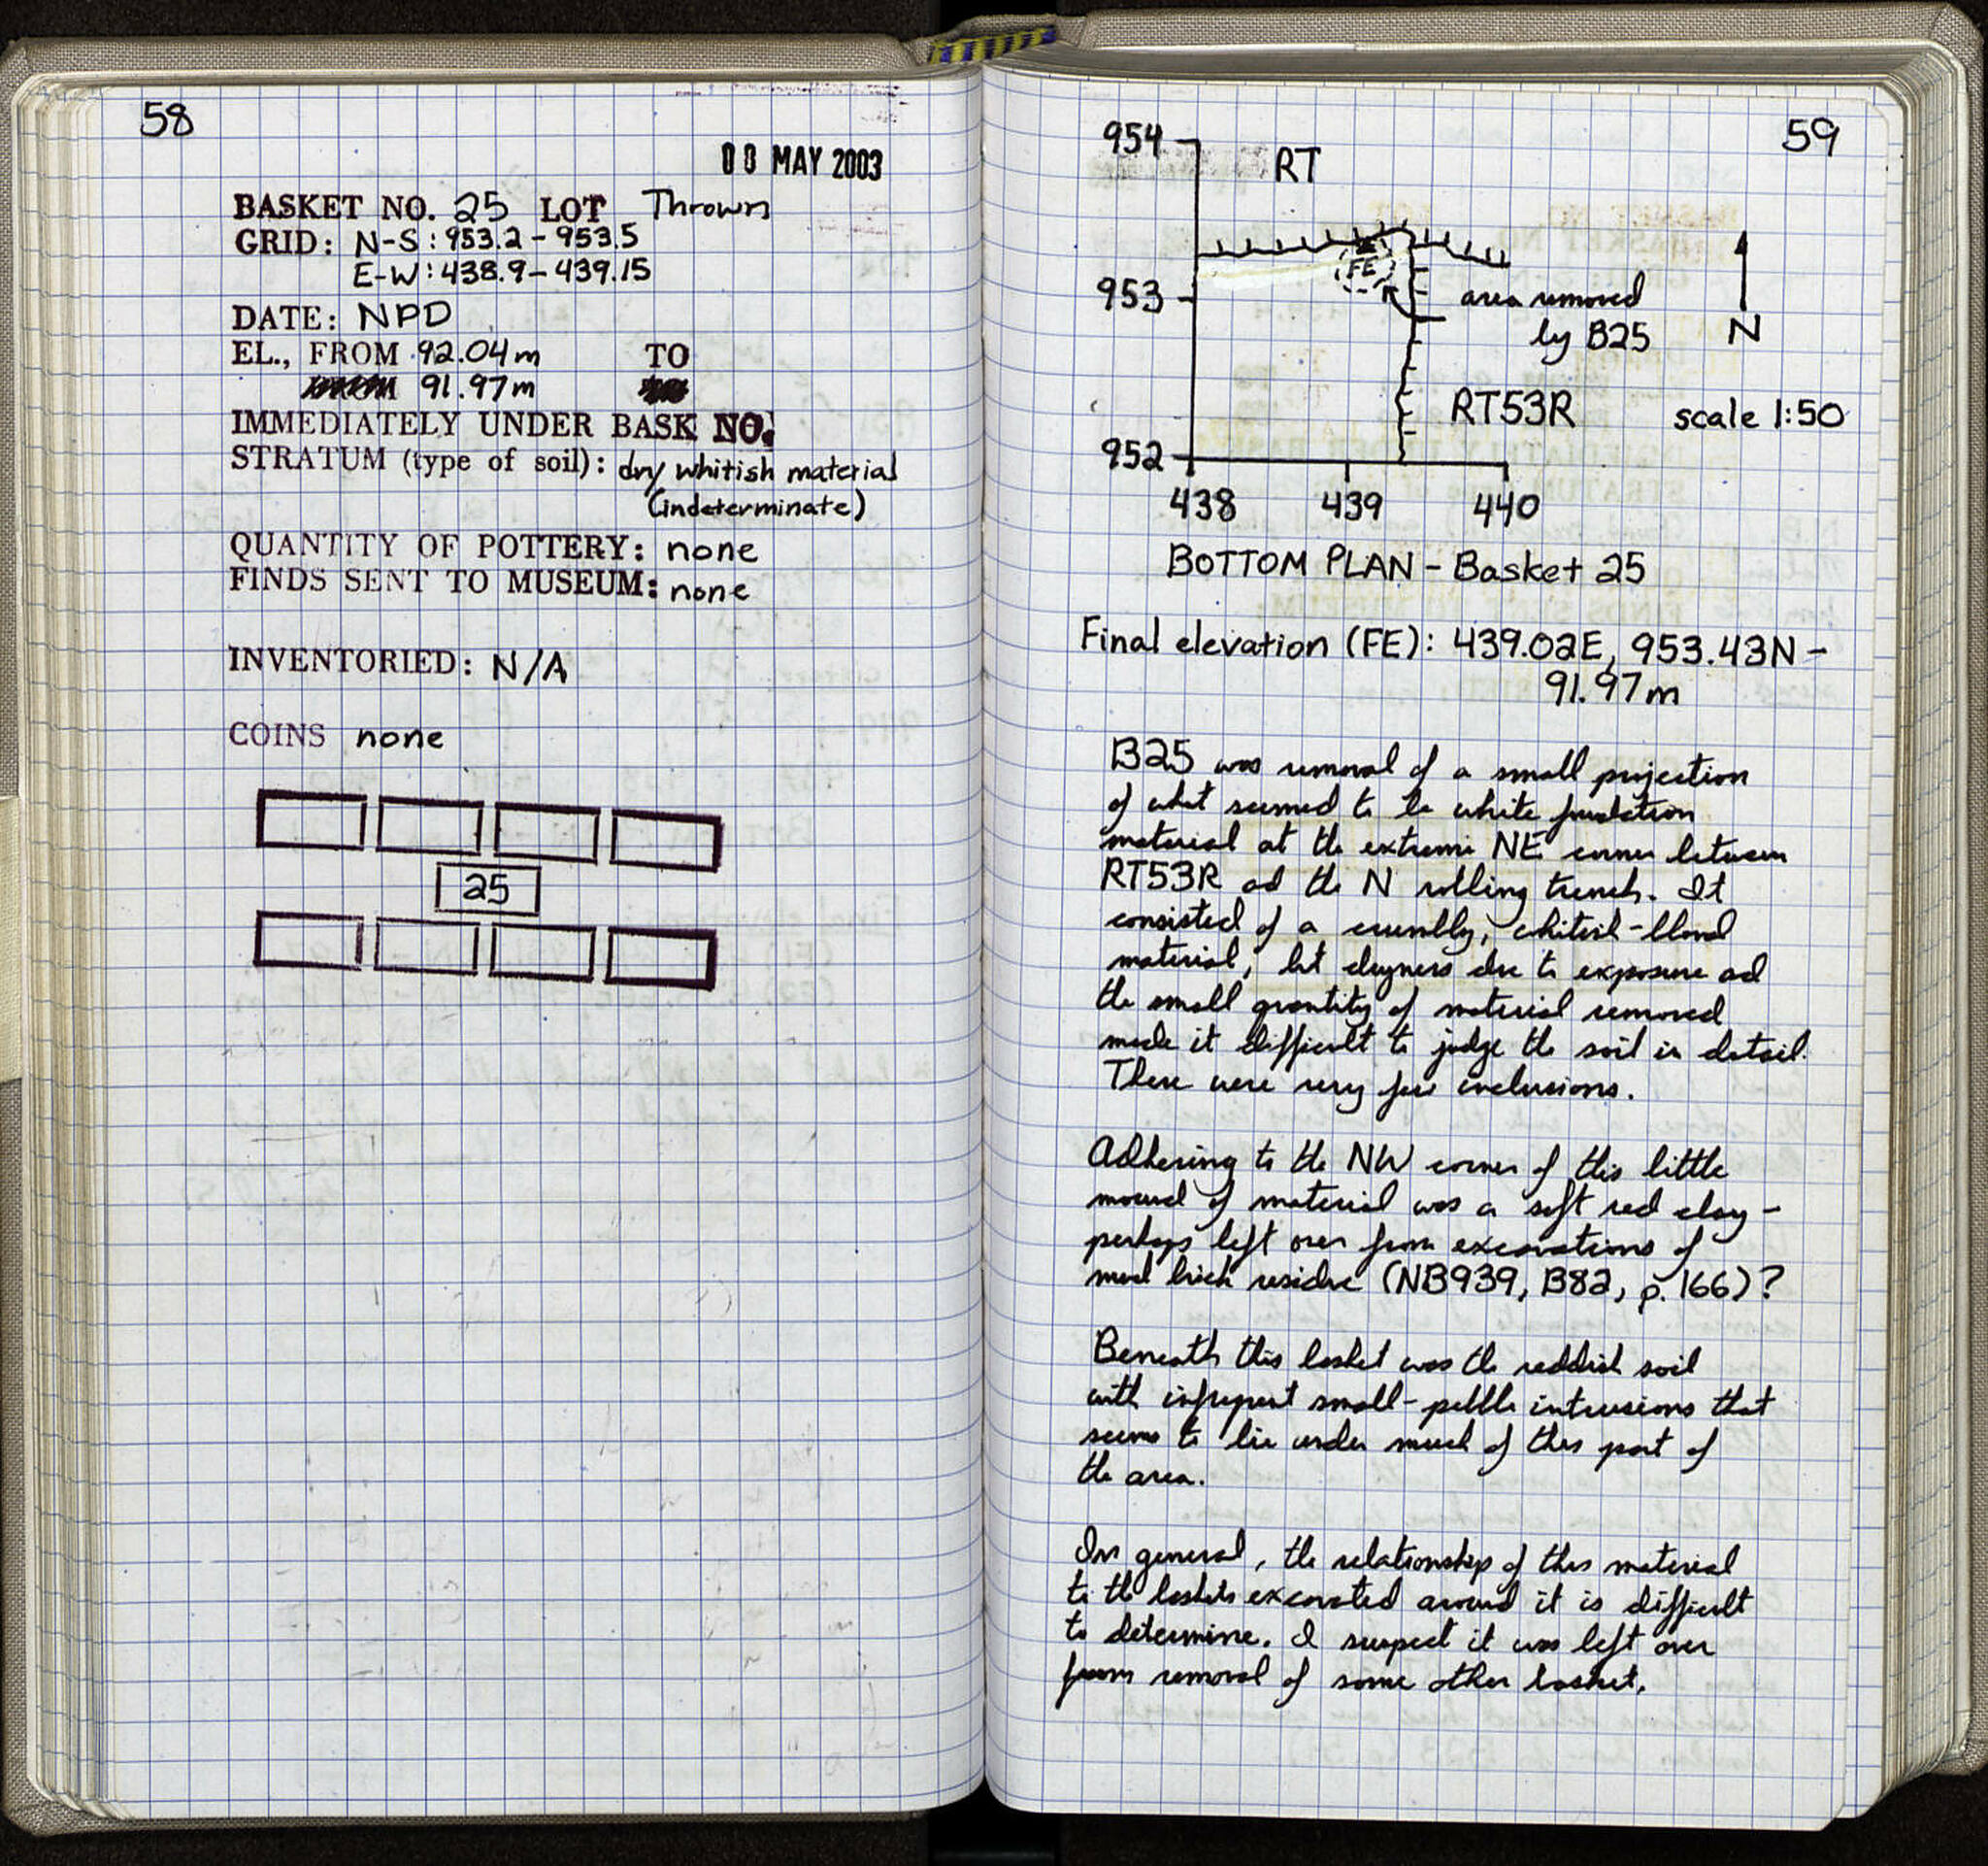 58
00 MAY 2003
BASKET NO. 25 LOT Thrown
GRID: N-S: 953.2-953.5
E-W: 438.9-439.15
DATE: NPD
EL., FROM 92.04m TO
91.97m
IMMEDIATELY UNDER BASK NO.
STRATUM (type of soil): dry whitish material
(indeterminate)
QUANTITY OF POTTERY: none
FINDS SENT TO MUSEUM: none
INVENTORIED: N/A
COINS none
25
59
954
RT
FE
953
area removed
by B25
N
RT53R
scale 1:50
952
438 439 440
BOTTOM PLAN - Basket 25
Final elevation (FE): 439.02E, 953.43N -
91.97m
B25 was removal of a small projection
of what seemed to be white foundation
material at the extreme NE corner between
RT53R and the N rolling trench. It
consisted of a crumbly, whitish-blond
material, but dryness due to exposure and
the small quantity of material removed
made it difficult to judge the soil in detail.
There were very few inclusions.
Adhering to the NW corner of this little
mound of material was a soft red clay -
perhaps left over from excavations of
mud brick residue (NB939, B82, p. 166)?
Beneath this basket was the reddish soil
with infrequent small-pebble intrusions that
seems to lie under much of this part of
the area.
In general, the relationship of this material
to the baskets excavated around it is difficult
to determine. I suspect it was left over
from removal of some other basket.